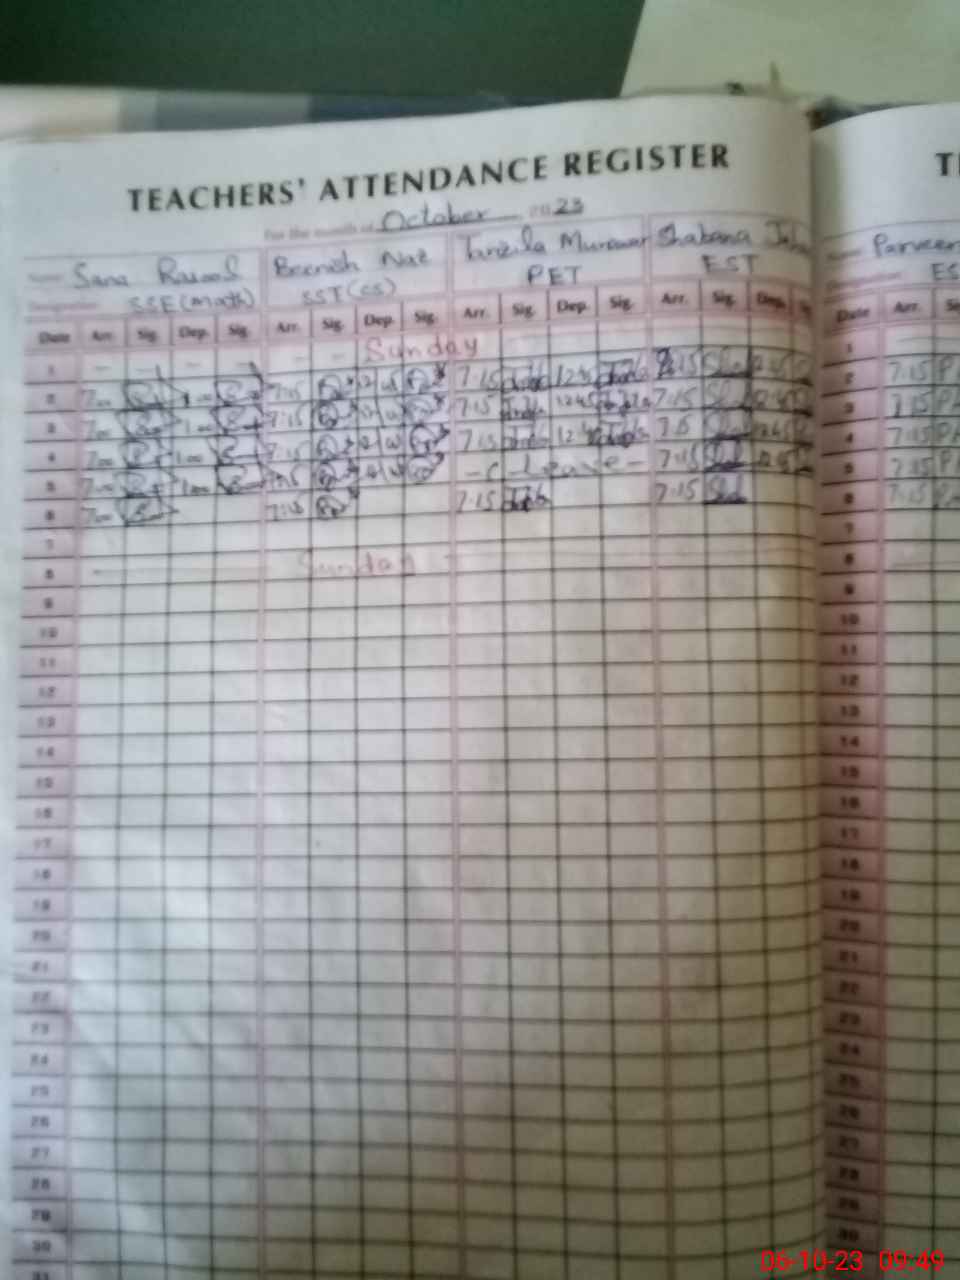 TEACHERS' ATTENDANCE REGISTER
For the month of October 2023
Name Sana Rasool Beenish Naz Tanzila Munawar Shabana
Designation SSE (Math) SST (CS) PET EST
Date Arr. Sig. Dep. Sig. Arr. Sig. Dep. Sig. Arr. Sig. Dep. Sig. Arr. Sig. Dep.
1 - - - - - Sunday
2 7:00 1:00 7:15 12:45 7:15 12:45 7:15 12:45
3 7:00 1:00 7:15 7:15 12:45 7:15 12:45
4 7:00 1:00 7:15 7:15 12:45 7:15 12:45
5 7:00 1:00 7:15 - C - Leave - 7:15 12:45
6 7:00 7:15 7:15 7:15
7
8 Sunday
9
10
11
12
13
14
15
16
17
18
19
20
21
22
23
24
25
26
27
28
29
30
31
T
Name Parveen
Designation ES
Date Arr.
1
2 7:15
3 7:15
4 7:15
5 7:15
6 7:15
7
8
9
10
11
12
13
14
15
16
17
18
19
20
21
22
23
24
25
26
27
28
29
30
06-10-23 09:49